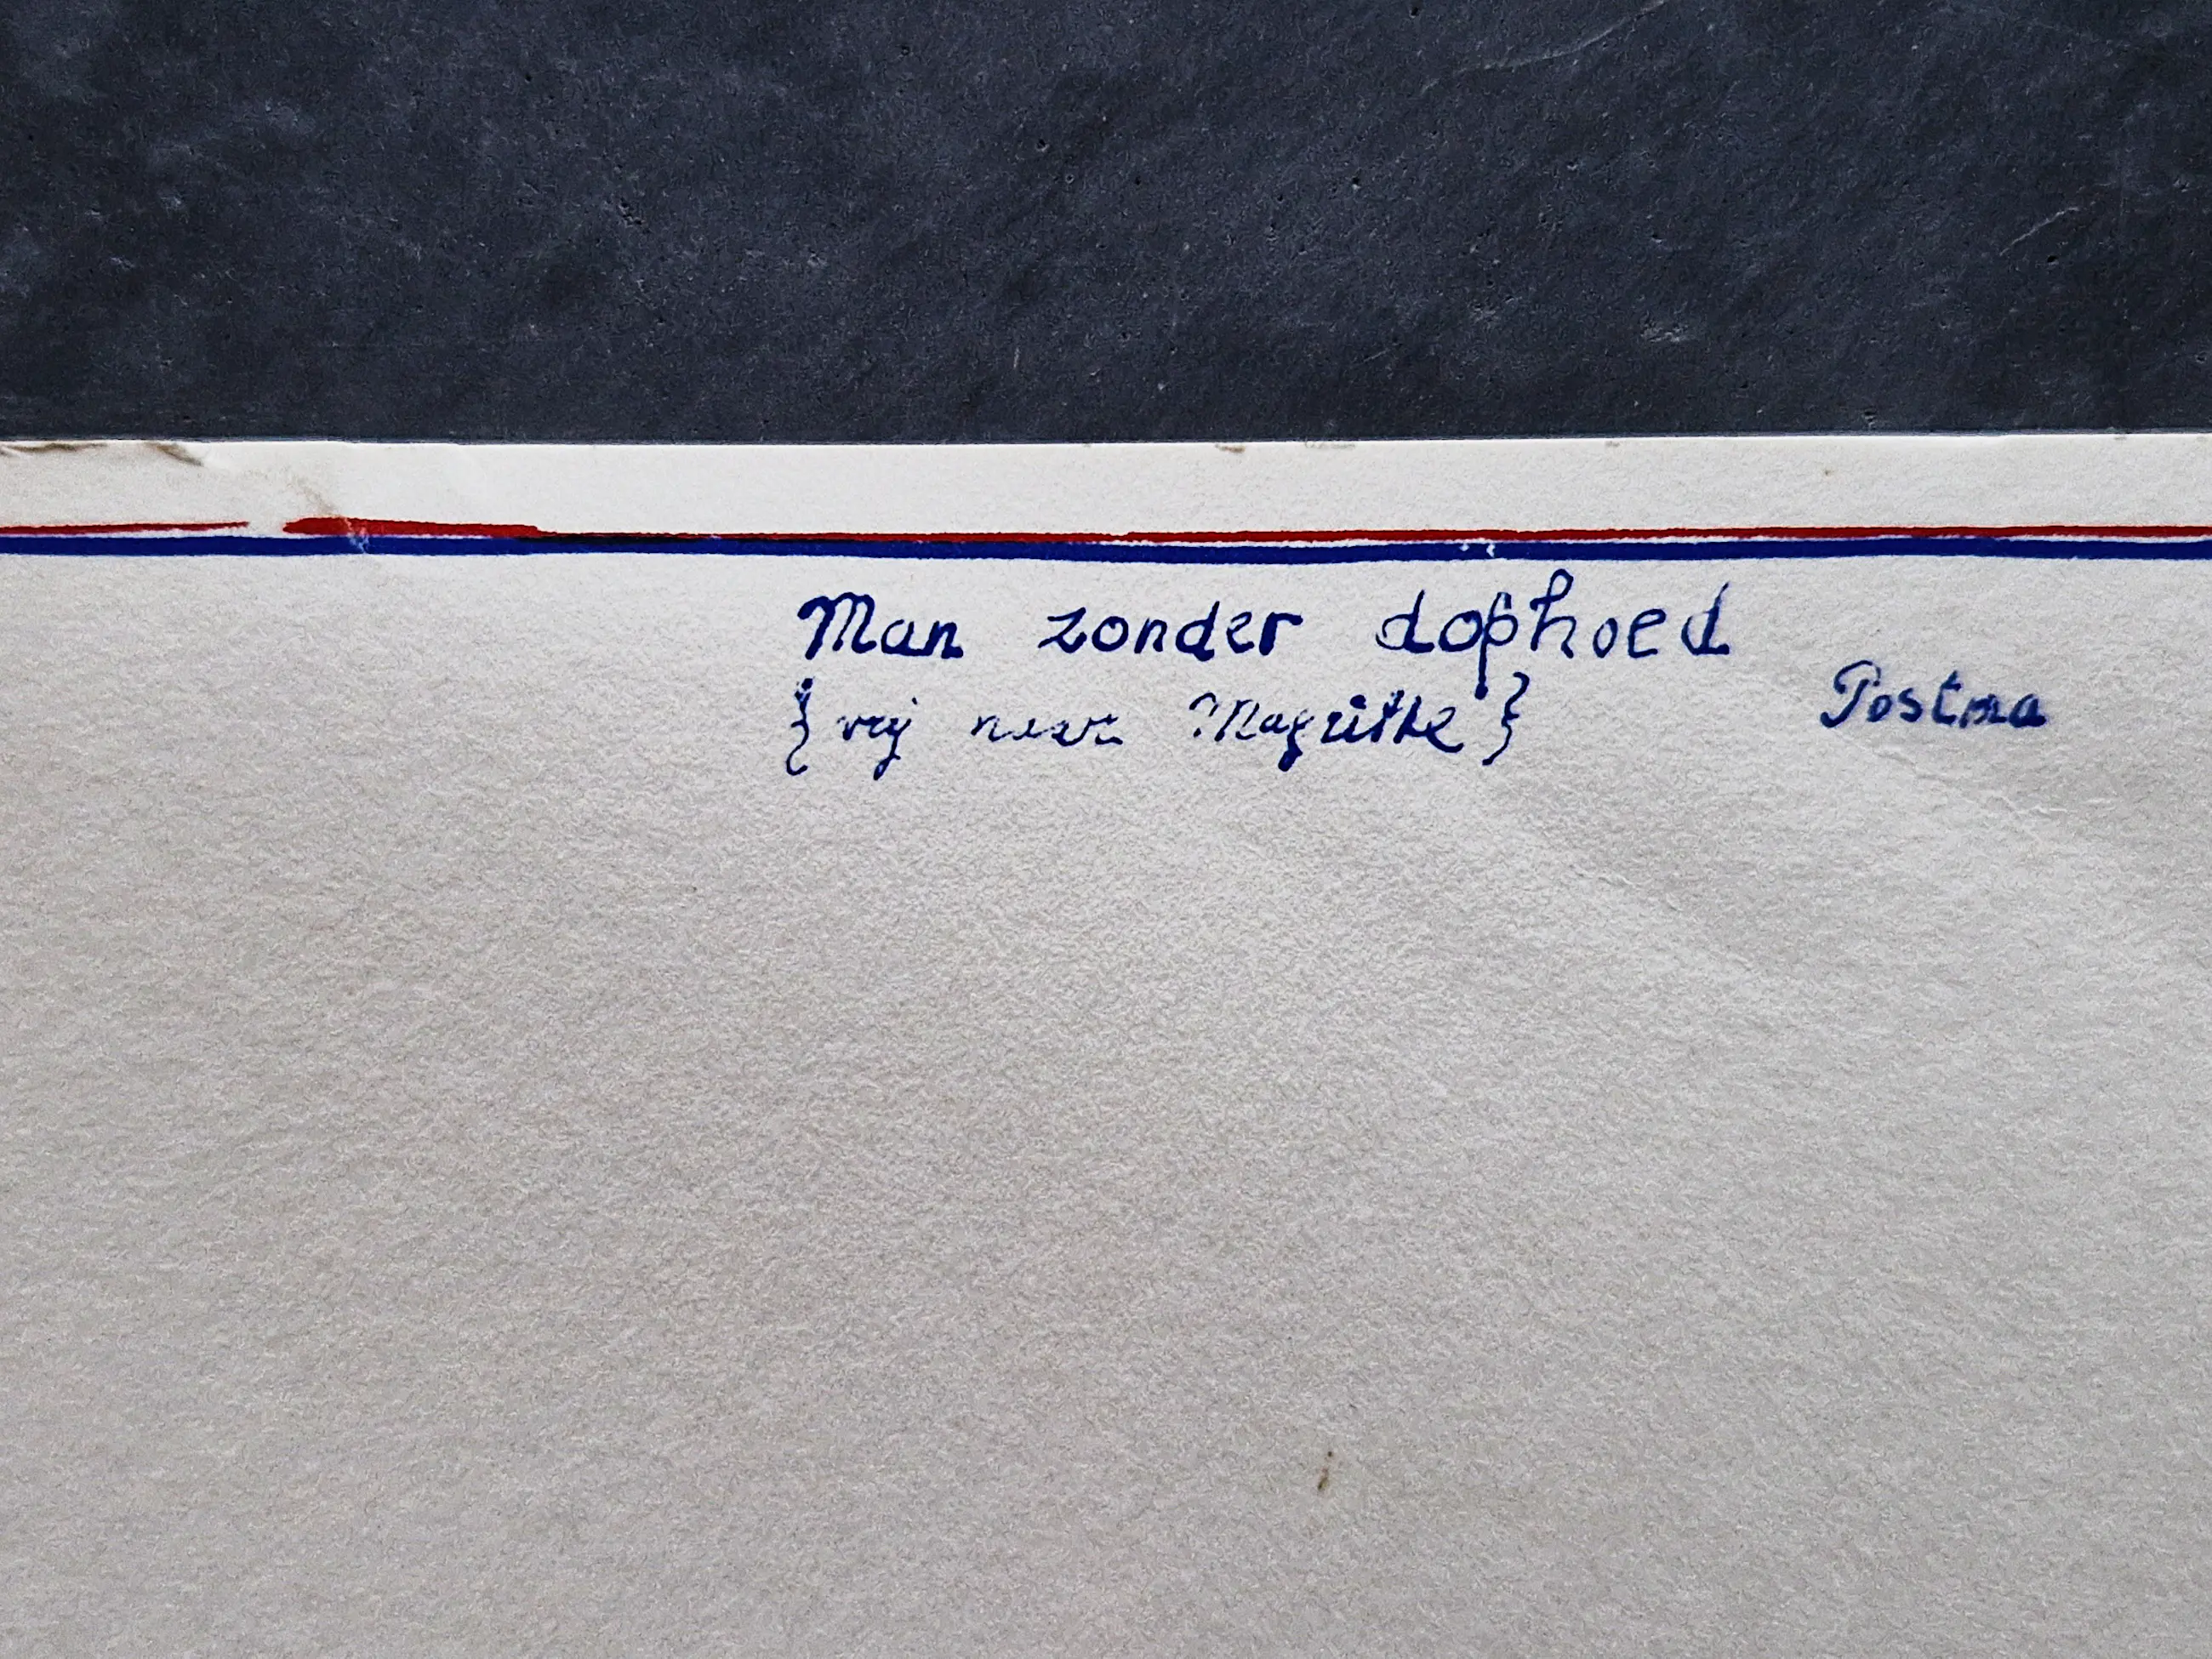 Man zonder dophoed
{vrij naar Magritte}
Postma